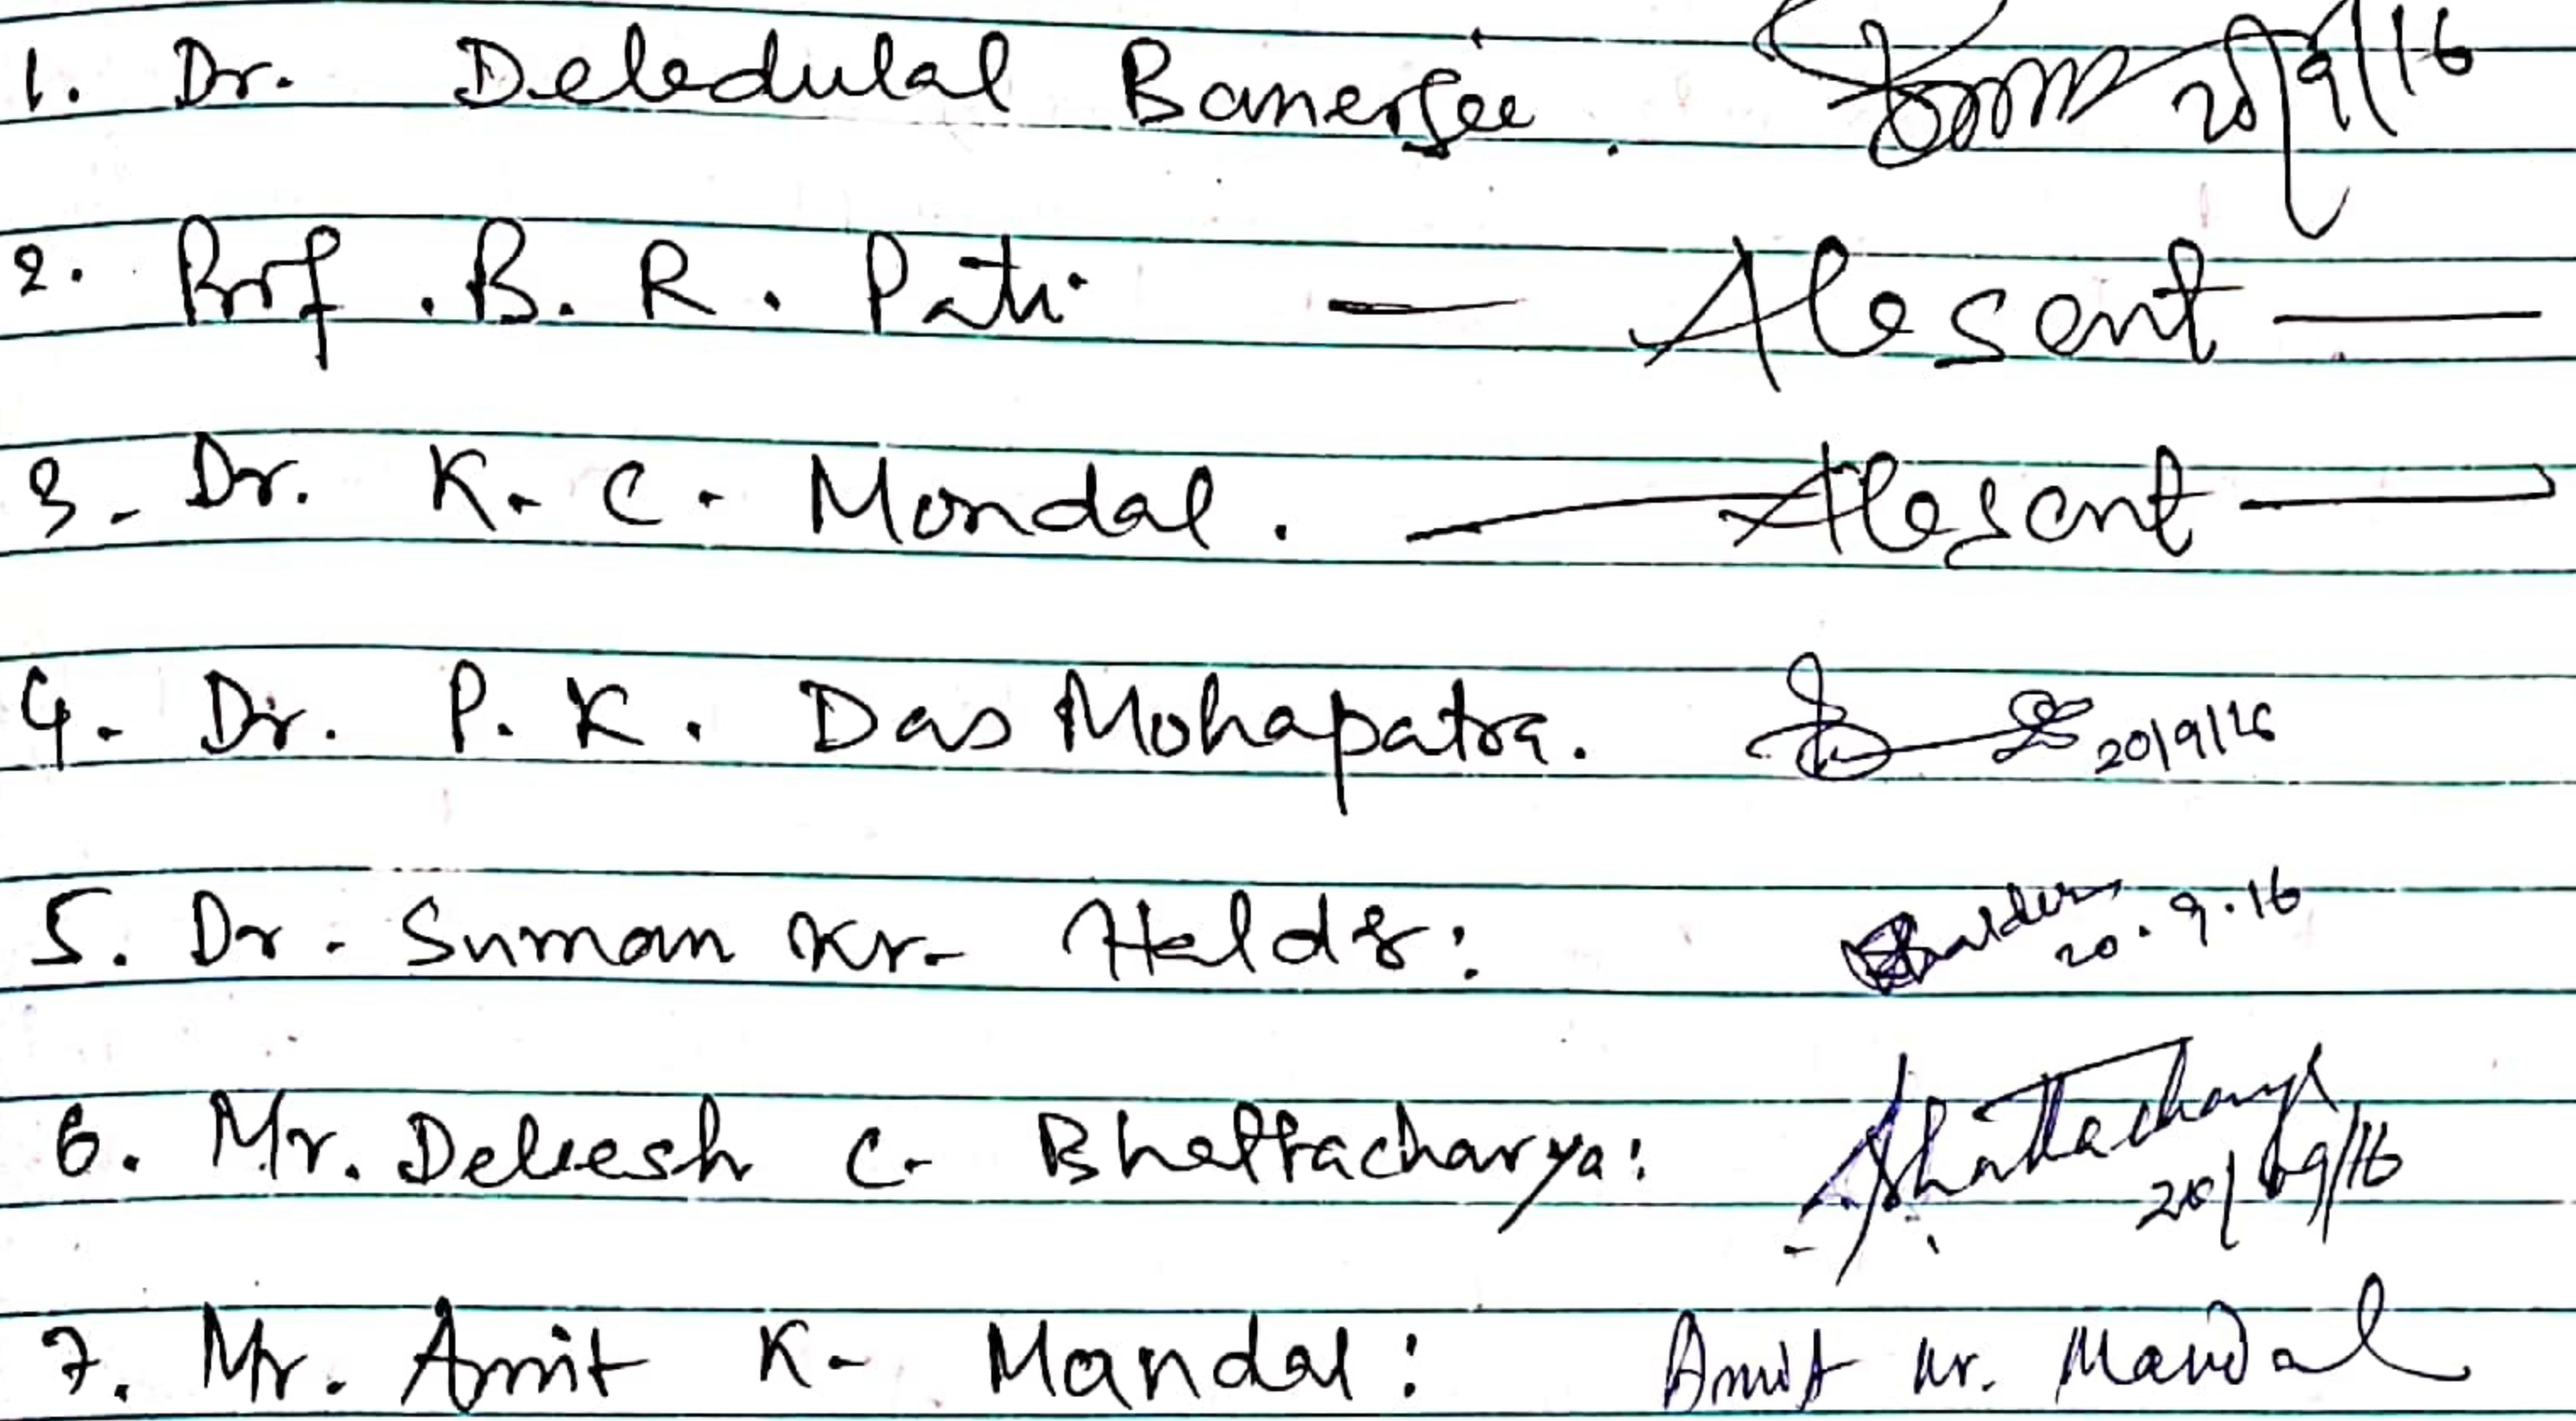 1. Dr. Debdulal Banerjee. 20/9/16
2. Prof. B. R. Pati — Absent —
3. Dr. K. C. Mondal. — Absent —
4. Dr. P. K. Das Mohapatra. 20/9/16
5. Dr. Suman Kr. Halder: SHalder 20.9.16
6. Mr. Debesh C. Bhattacharya: Bhattacharya 20/09/16
7. Mr. Amit K. Mandal: Amit Kr. Mandal